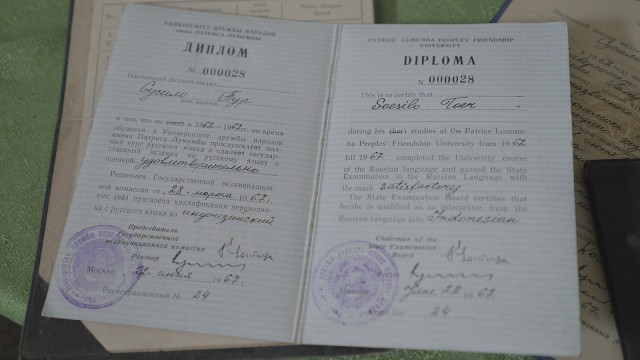 УНИВЕРСИТЕТ ДРУЖБЫ НАРОДОВ
имени ПАТРИСА ЛУМУМБЫ
ДИПЛОМ
№ 000028
Настоящий диплом выдан
Сусило Тур
в том, что он 1962-1967 гг. во время
обучения в Университете дружбы народов
имени Патриса Лумумбы прослушал пол
ный курс русского языка и сдал государ
ственный экзамен по русскому языку с
оценкой удовлетворительно
Решением Государственной экзаменацион
ной комиссии от 28 марта 1967 г.
ему (ей) присвоена квалификация переводчи
ка с русского языка на индонезийский
Председатель
Государственной
экзаменационной комиссии
Ректор
Москва, 22 июня 1967 г.
Регистрационный № 24
PATRICE LUMUMBA PEOPLES' FRIENDSHIP
UNIVERSITY
DIPLOMA
N. 000028
This is to certify that
Soesilo Toer
during his (her) studies at the Patrice Lumum-
ba Peoples' Friendship University from 1962
till 1967 completed the University course
of the Russian language and passed the State
Examination in the Russian Language with
the mark satisfactory
The State Examination Board certifies that
he/she is qualified as an interpreter from the
Russian language into Indonesian
Chairman of the
State Examination
Board
June 22 1967
24